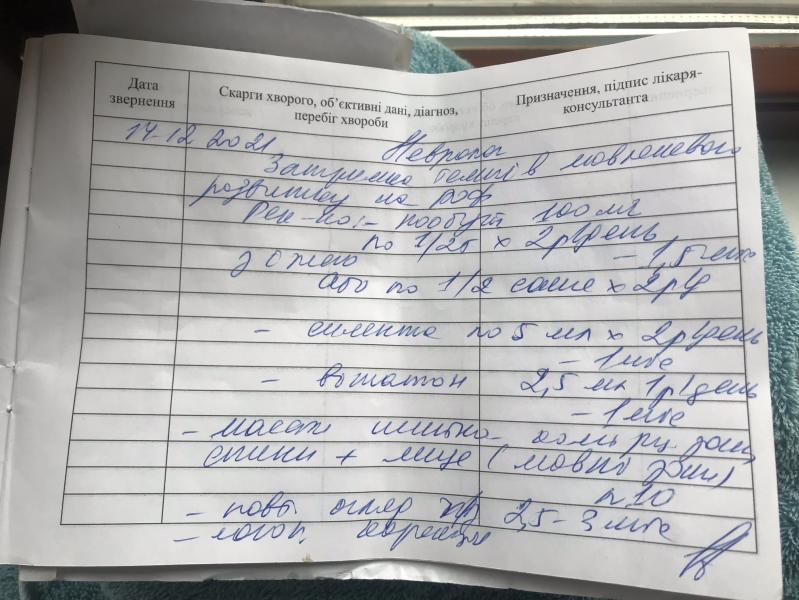 Дата звернення
Скарги хворого, об'єктивні дані, діагноз, перебіг хвороби
Призначення, підпис лікаря-консультанта
14.12.2021 Невролог
Затримка темпів мовленевого
розвитку на
Рек-но: - 100 мг
по 1/2т х 2р/день
з їжею - 1,5 міс
або по 1/2 саше х 2р/д
- по 5 мл х 2р/день
- 1 міс
- 2,5 мл 1р/день
- 1 міс
- масаж шийно- зони,
спини + лице (мовні зони)
n 10
- повт огляд ч/з 2,5-3 міс
- логоп. корекція